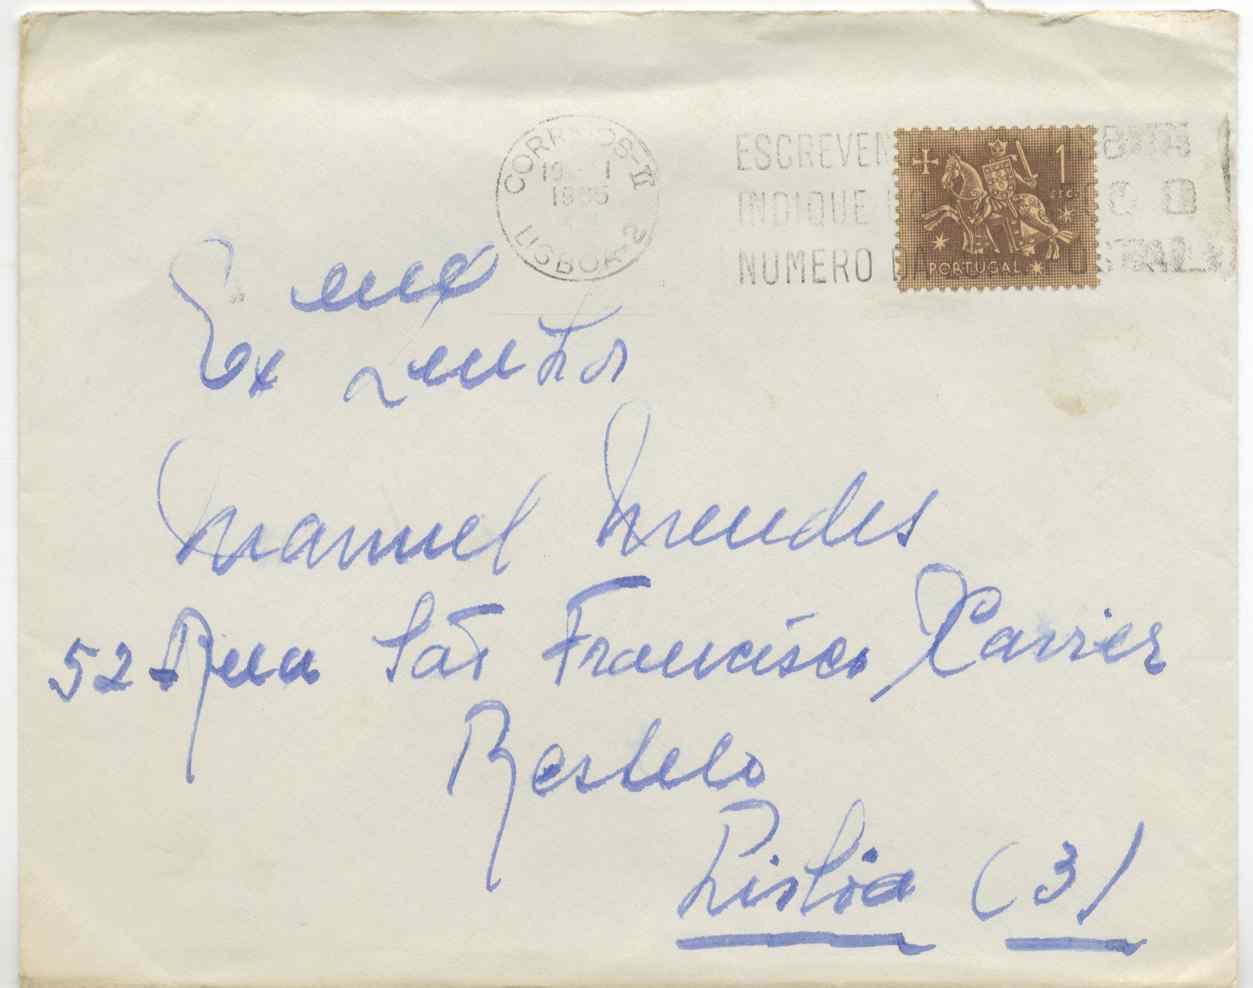 CORREIOS-TT
19 - 1
1965
LISBOA-2
ESCREVEN
INDIQUE
NUMERO
1
ESC.
PORTUGAL
Ex emo Senhor
Manuel Mendes
52 Rua São Francisco Xavier
Restelo
Lisboa (3)